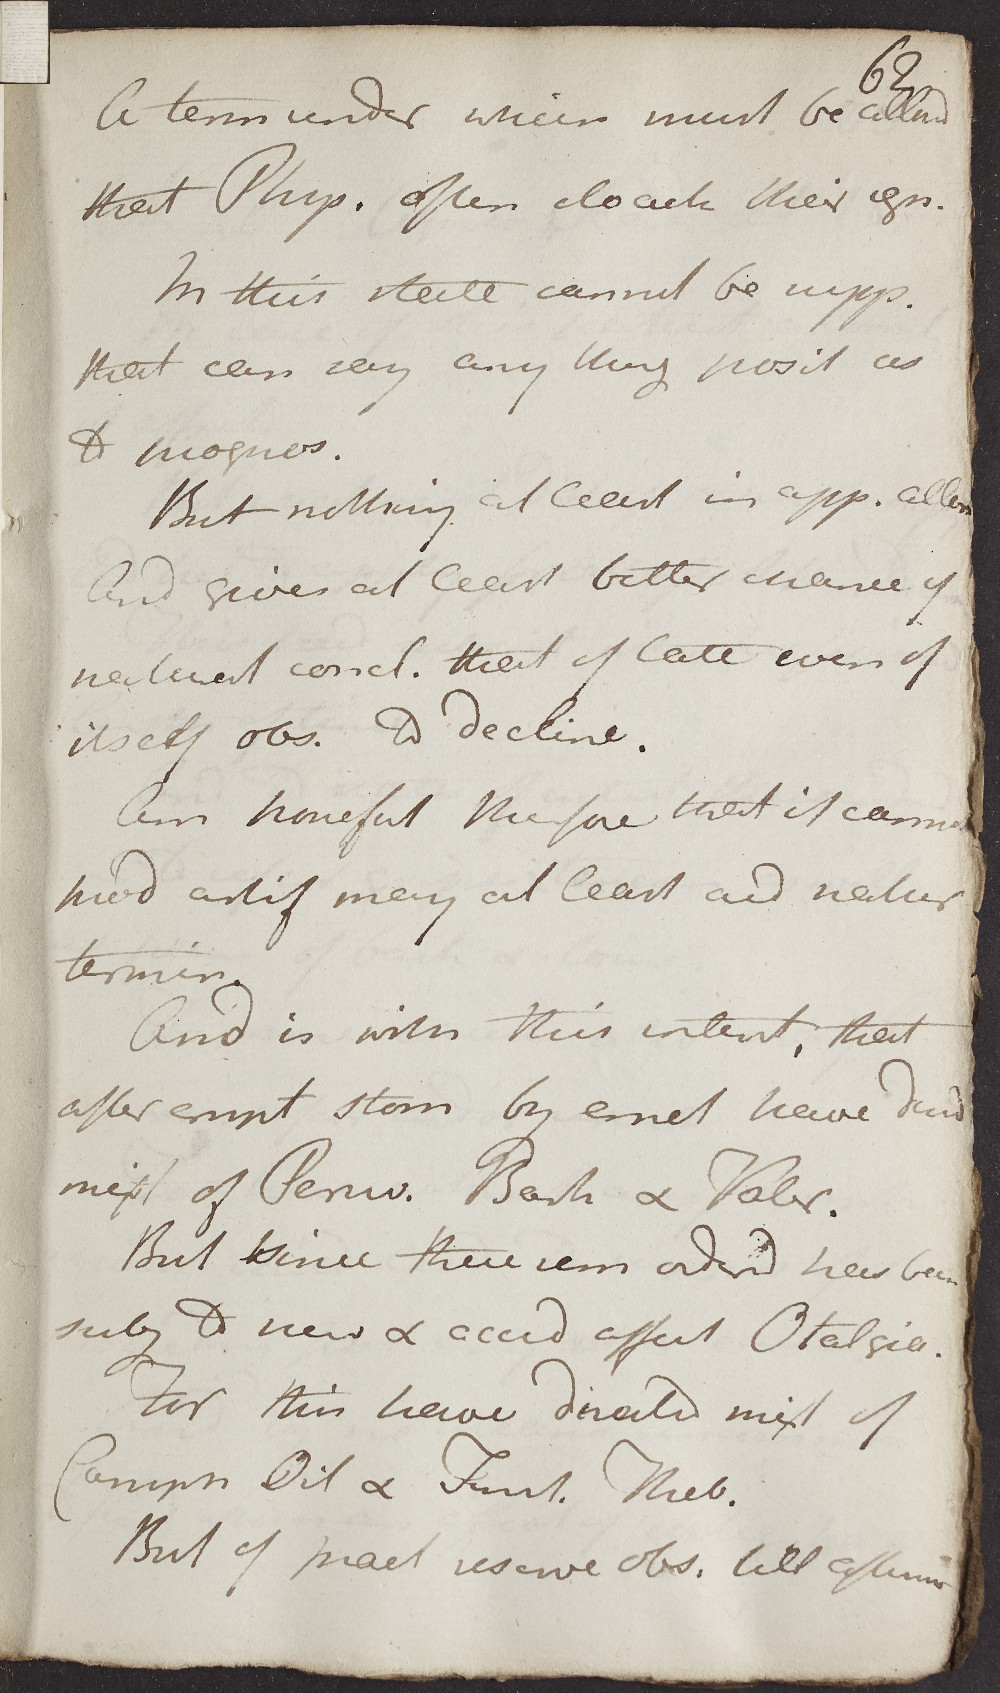 62
A term under which must be allowd
that Phys. often cloack their ign.
In this state cannot be supp.
that can say any thing posit as
to prognos.
But nothing at least in app. allarm
And gives at least better chance of
natural concl. that of late even of
itself obs. to decline.
Am hopeful therefore that if cannot
prod artif may at least aid natur
termin.
And is with this intent, that
after empt stom by emet have dird
mixt of Peruv. Bark & Valer.
But since these rem orderd has been
subj to new & accid affect Otalgia.
For this have directd mixt of
Camph Oil & Tinct. Theb.
But of pract reserve obs. till afterwar